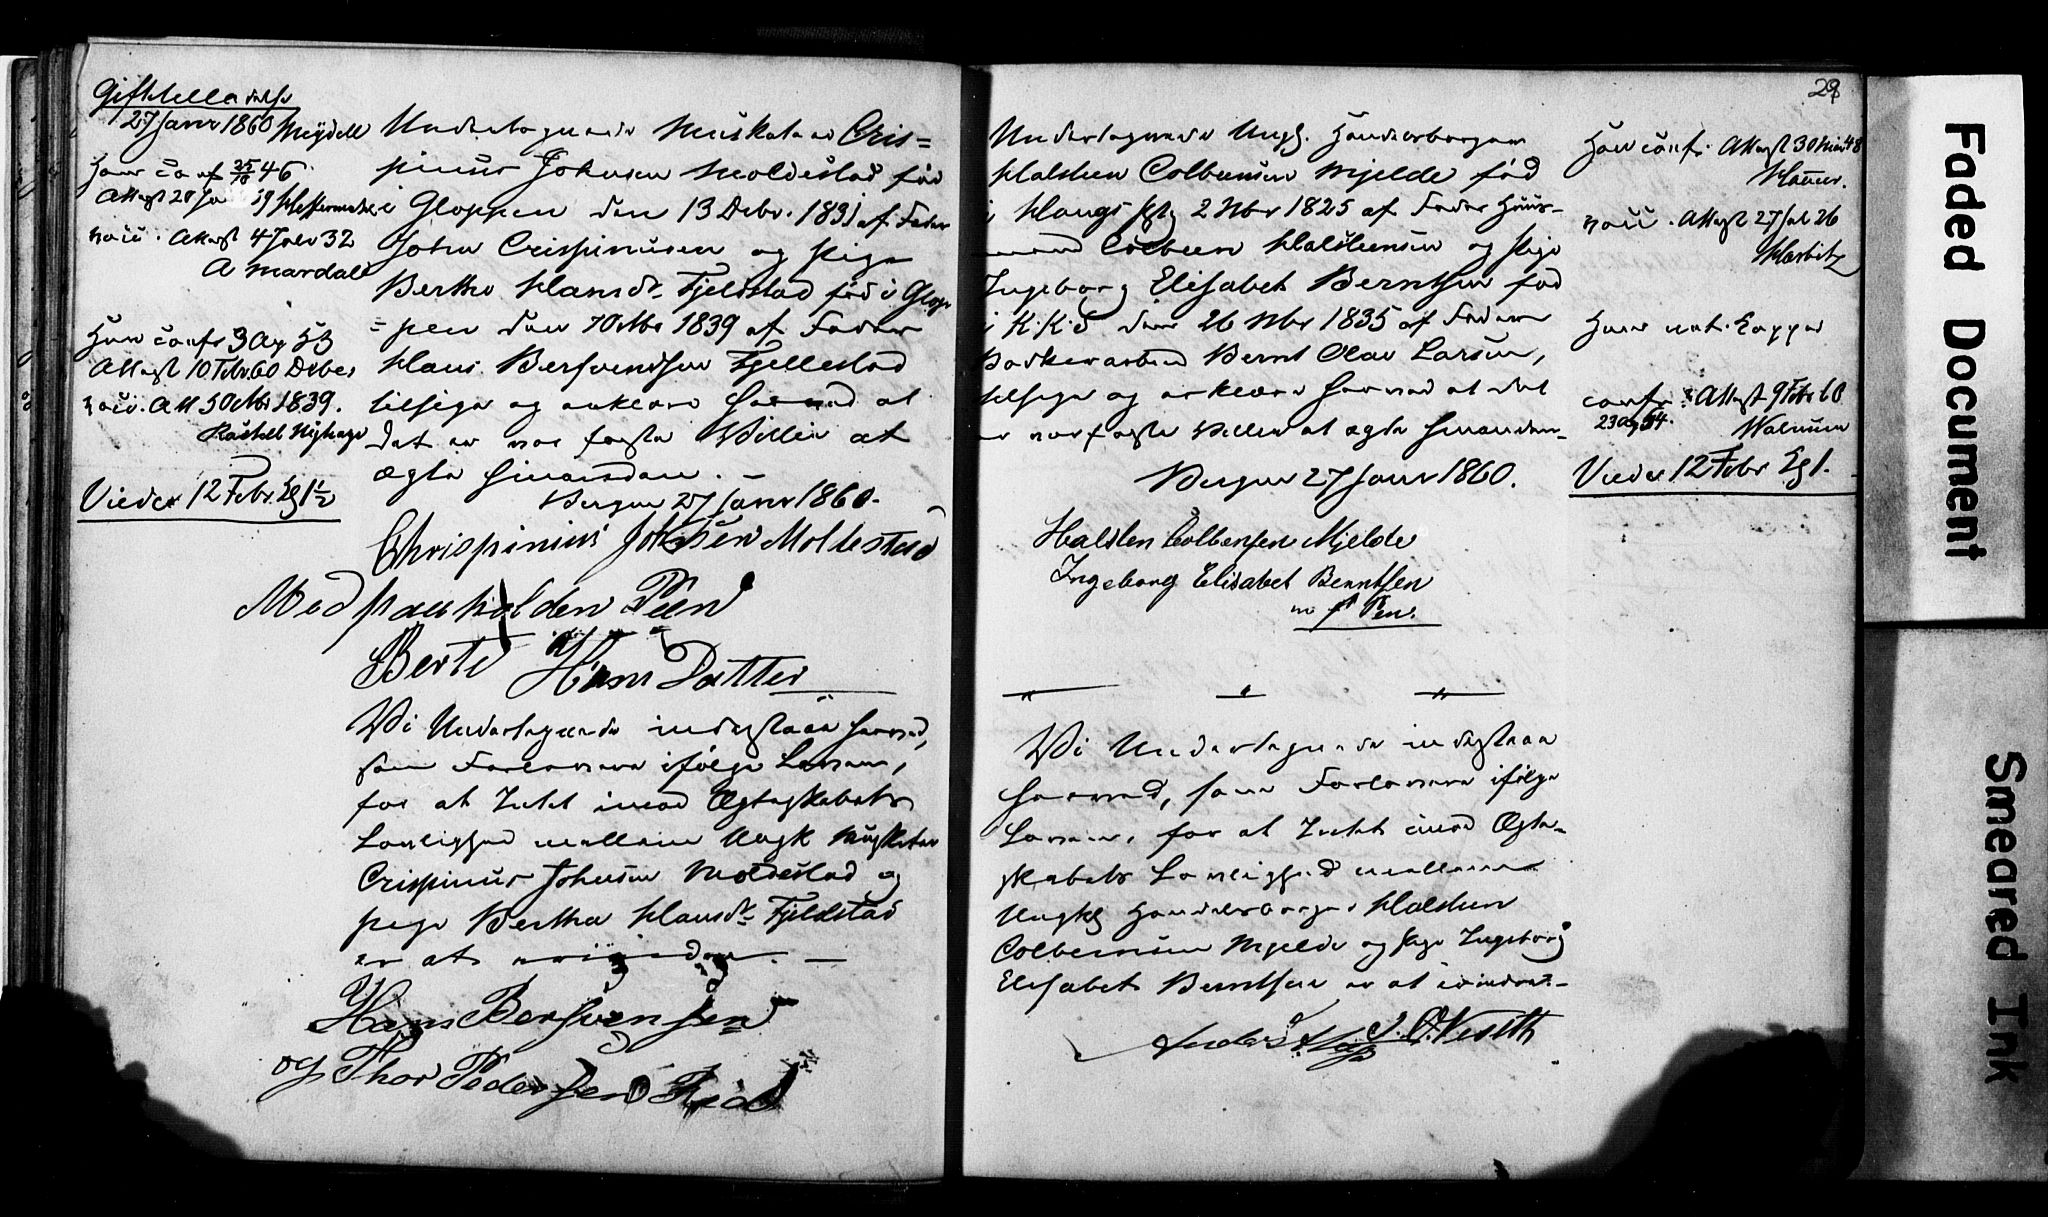 27 Janr 1860 Meydell
Hans Conf 25/10 46
Attest
nat. Attest 4 Jul 32
A Mardall
Hun Confr 3 Aug 53
Attest 10 Febr. 60
nat. Att 5 Octbr 1839.
Viede 12 Febr. Eg 1½
Undertegnede Muskateer Cris=
pinus Johnsen Moldestad fød
i Gloppen den 13 Debr. 1831 af Fader
John Crispinusen og Pige
Berthe Hansdr Fjeldstad fød i Glop
=pen den 7 Octbr 1839 af Fader
Hans Bersvendsen Fjellestad
tilsige og erklære herved at
det er vor faste Villie at
ægte hinanden. —
Bergen 27 Janr 1860.
Chrispinius Johnsen Moldestad
Med paaholden Pen
Berte Hans Datter
Vi Undertegnede indestaae herved,
som Forlovere ifølge Loven,
for at Intet imod Ægteskabets
Lovlighed mellem Ungk Musketer
Crispinus Johnsen Moldestad og
pige Berthe Hansdr Fjeldstad
er at erindre. —
Hans Bersvensen
og Thor Pedersen
29
Undertegnede Ungk. Handelsborger
Halsten Colbensen Mjelde fød
i Haugs 2 Nbr 1825 af Fader Huus-
mand Colben Halstensen og Pige
Ingeborg Elisabet Berntsen fød
i K.K.S den 26 Nbr 1835 af Fader
Bernt Olav Larsen,
tilsige og erklære herved at det
er vor faste Villie at ægte hinanden-
Bergen 27 Janr 1860.
Halsten Colbensen Mjelde
Ingeborg Elisabet Berntsen
m f Pen.
Vi Undertegnede indestaae
herved, som Forlovere ifølge
Loven, for at Intet imod Ægte-
skabets Lovlighed mellem
Ungk Handelsborger Halsten
Colbensen Mjelde og Pige Ingeborg
Elisabet Berntsen er at erindre.-
Han confr. Attest 30 48
nat. Attest 27 Jul 26
Hun nat. Kopper
confr: Attest 9 Febr 60
23 Aug 54.
Viede 12 Febr Eg 1.
Faded Document
Smeared Ink